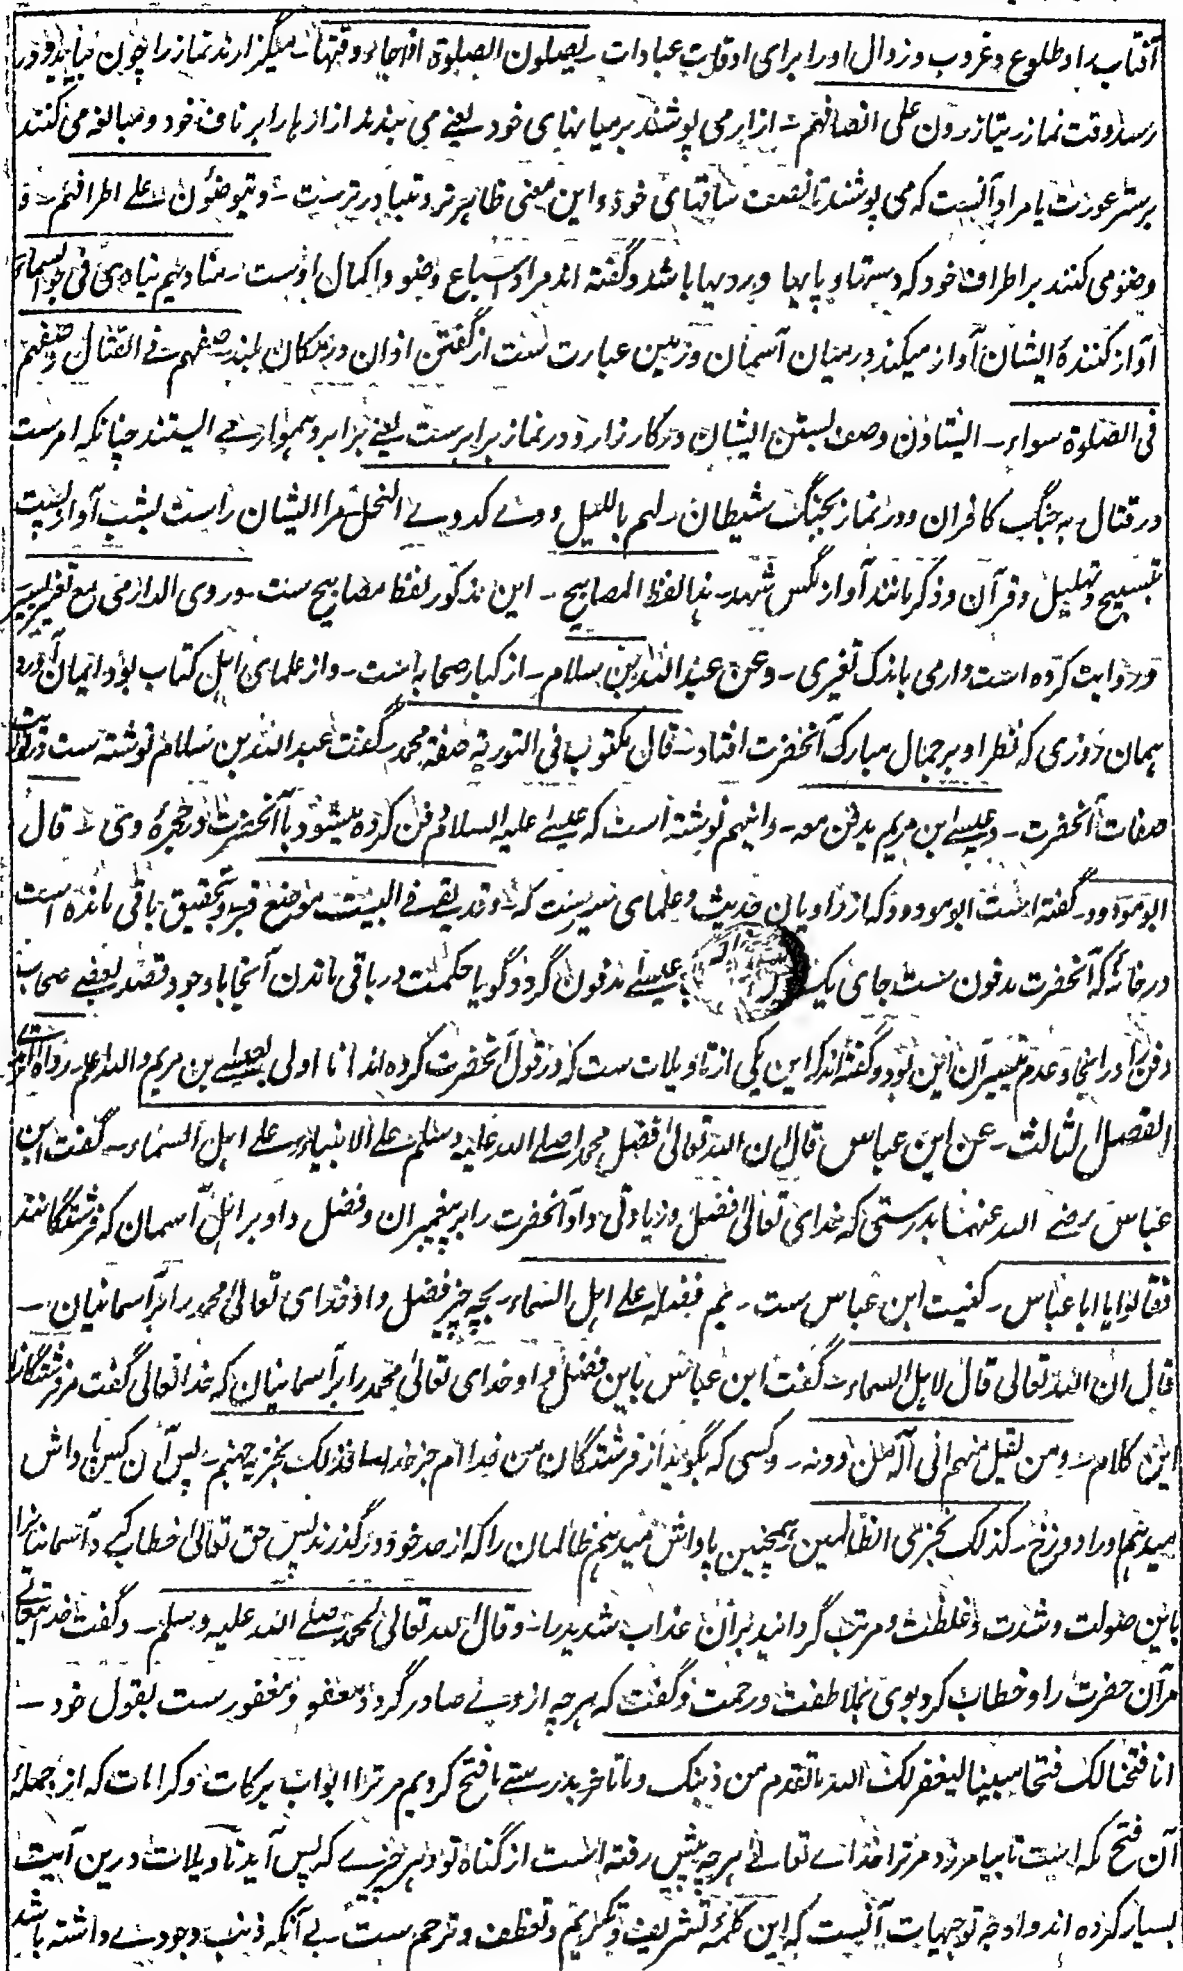 آفتاب را و طلوع و غروب و زوال او را برای اوقات عبادات ـ یصلون الصلوة اذا جاء وقتها ـ میگزارند نماز را چون بیاید و در
رسد وقت نماز ـ یتازرون علی انصافهم ـ ازار می پوشند بر میانهای خود یعنے می بندند ازارها را بر ناف خود و مبالغه می کنند
بر ستر عورت یا مراد آنست که می پوشند تا نصف ساقهای خود و این معنی ظاهر تر و متبادر ترست ـ و یتوضئون علے اطرافهم ـ و
وضو می کنند بر اطراف خود که دستها و پایها و رویها باشد و گفته اند مراد اسباغ وضو و اکمال اوست ـ منادیهم ینادی فی جو السماء
آواز کنندهٔ ایشان آواز میکند درمیان آسمان و زمین عبارت ست از گفتن اذان در مکان بلند ـ صفهم فے القتال و صفهم
فی الصلوة سواء ـ ایستادن و صف بستن ایشان در کارزار و در نماز برابرست یعنے برابر و هموار مے ایستند چنانکه امرست
در قتال به جنگ کافران و در نماز بجنگ شیطان ـ لهم باللیل دوے کدوے النحل مر ایشان راست بشب آواز پست
بتسبیح و تهلیل و قرآن و ذکر مانند آواز مگس شهد ـ هذا لفظ المصابیح ـ این مذکور لفظ مصابیح ست ـ و روی الدارمی مع تغییر یسیر
و روایت کرده است دارمی باندک تغیری ـ و عن عبد الله بن سلام ـ از کبار صحابه است ـ و از علمای اهل کتاب بود ایمان آورد
همان روزی که نظر او بر جمال مبارک آنحضرت افتاد ـ قال مکتوب فی التوریة صفة محمد ـ گفت عبد الله بن سلام نوشته ست در توریت
صفات آنحضرت ـ و عیسے ابن مریم یدفن معه ـ و اینهم نوشته است که عیسے علیه السلام دفن کرده میشود با آنحضرت در حجرهٔ وی ـ قال
ابو مودود ـ گفته است ابو مودود که از راویان حدیث و علمای مدینست که ـ و قد بقے فے البیت موضع قبر و بتحقیق باقی مانده است
در خانه که آنحضرت مدفون ست جای یک عیسے مدفون گردد گویا حکمت در باقی ماندن آنجا با وجود قصد بعضے صحابه
دفن را در اینجا و عدم تیسیر آن این بود و گفته اند که این یکی از تاویلات ست که در قول آنحضرت کرده اند انا اولی بعیسے بن مریم و الله اعلم رواه الترمذے
الفصل الثالث ـ عن ابن عباس قال ان الله تعالی فضل محمدا صلے الله علیه وسلم علے الانبیاء و علے اهل السماء ـ گفت ابن
عباس رضے الله عنهما بدرستی که خدای تعالی فضل و زیادتی داد آنحضرت را بر پیغمبران و فضل داد بر اهل آسمان که فرشتگانند
فقالوا یا ابا عباس ـ کنیت ابن عباس ست ـ بم فضله علے اهل السماء ـ بچه چیز فضل داد خدای تعالی محمد را بر آسمانیان ـ
قال ان الله تعالی قال لاهل السماء ـ گفت ابن عباس باین فضل داد خدای تعالی محمد را بر آسمانیان که خدا تعالی گفت مر فرشتگانرا
این کلام ـ و من یقل منهم انی اله من دونه ـ و کسی که بگوید از فرشتگان من خدا ام جز خدا فذلک نجزیه جهنم ـ پس آن کس پاداش
میدهم او را دوزخ ـ کذلک نجزی الظالمین همچنین پاداش میدهم ظالمان را که از حد خود درگذرند پس حق تعالی خطاب کرد آسمانیانرا
باین صولت و شدت و غلظت و مرتب گردانید بران عذاب شدید را ـ و قال الله تعالی لمحمد صلے الله علیه وسلم ـ و گفت خدایتعالے
مر آن حضرت را و خطاب کرد بوی بملاطفت و رحمت و گفت که هر چه از وے صادر گردد معفو و مغفورست بقول خود ـ
انا فتحنا لک فتحا مبینا لیغفر لک الله ما تقدم من ذنبک و ما تاخر بدرستے ما فتح کردیم مر ترا ابواب برکات و کرامات که از جملهٔ
آن فتح مکه است تا بیامرزد مر ترا خداے تعالے هر چه پیش رفته است از گناه تو و هر چیزے که پس آید تاویلات درین آیت
بسیار کرده اند و اوجه توجیهات آنست که این کلمهٔ تشریف و تکریم و تعطف و ترحم ست بے آنکه ذنب وجودے داشته باشد